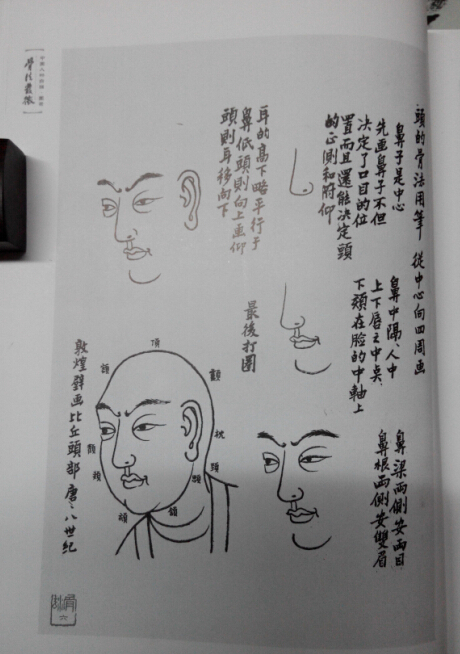 頭的骨法用筆　從中心向四周画
鼻子是中心
先画鼻子不但
决定了口目的位
置而且還能决定頭
的正側和府仰
鼻中隔、人中
上下唇之中央、
下頦在脸的中軸上
鼻梁兩側安兩目
鼻根兩側安雙眉
耳的高下略平行于
鼻低頭則向上画仰
頭則耳移向下
最後打圈
頂
額
顴
枕
頸
頦
敦煌壁画比丘頭部唐、八世纪
六